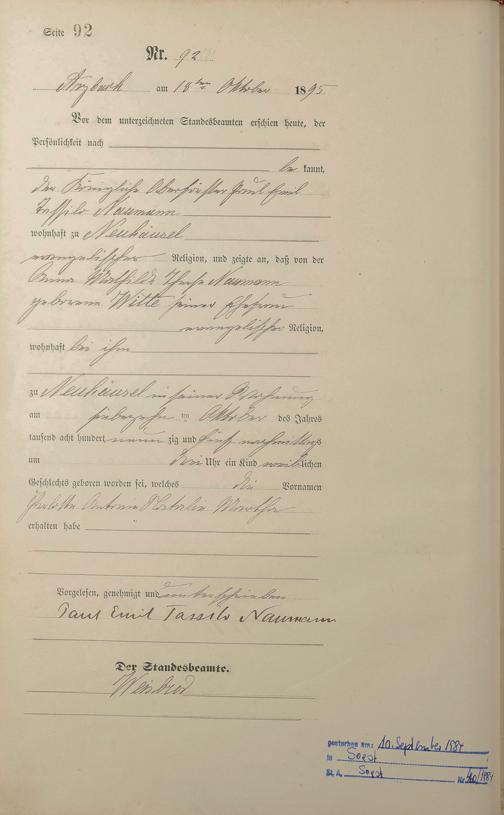 Seite 92
Nr. 92
Arzbach am 18ten Oktober 1895
Vor dem unterzeichneten Standesbeamten erschien heute, der
Persönlichkeit nach
be kannt,
der Königliche Oberförster Paul Emil
Tassilo Naumann
wohnhaft zu Neuhäusel
evangelischer Religion, und zeigte an, daß von der
Anna Mathilde Naumann
geborene Witte seiner Ehefrau
evangelischer Religion,
wohnhaft bei ihm
zu Neuhäusel in seiner Wohnung
am siebzehn ten Oktober des Jahres
tausend acht hundert neun zig und fünf nachmittags
um drei Uhr ein Kind weiblichen
Geschlechts geboren worden sei, welches die Vornamen
Charlotte Antonie Natalie Martha
erhalten habe
Vorgelesen, genehmigt und unterschrieben
Paul Emil Tassilo Naumann
Der Standesbeamte.
Weisbrod
gestorben am: 10. September 1984
in Soest
St. A. Soest Nr. /1984